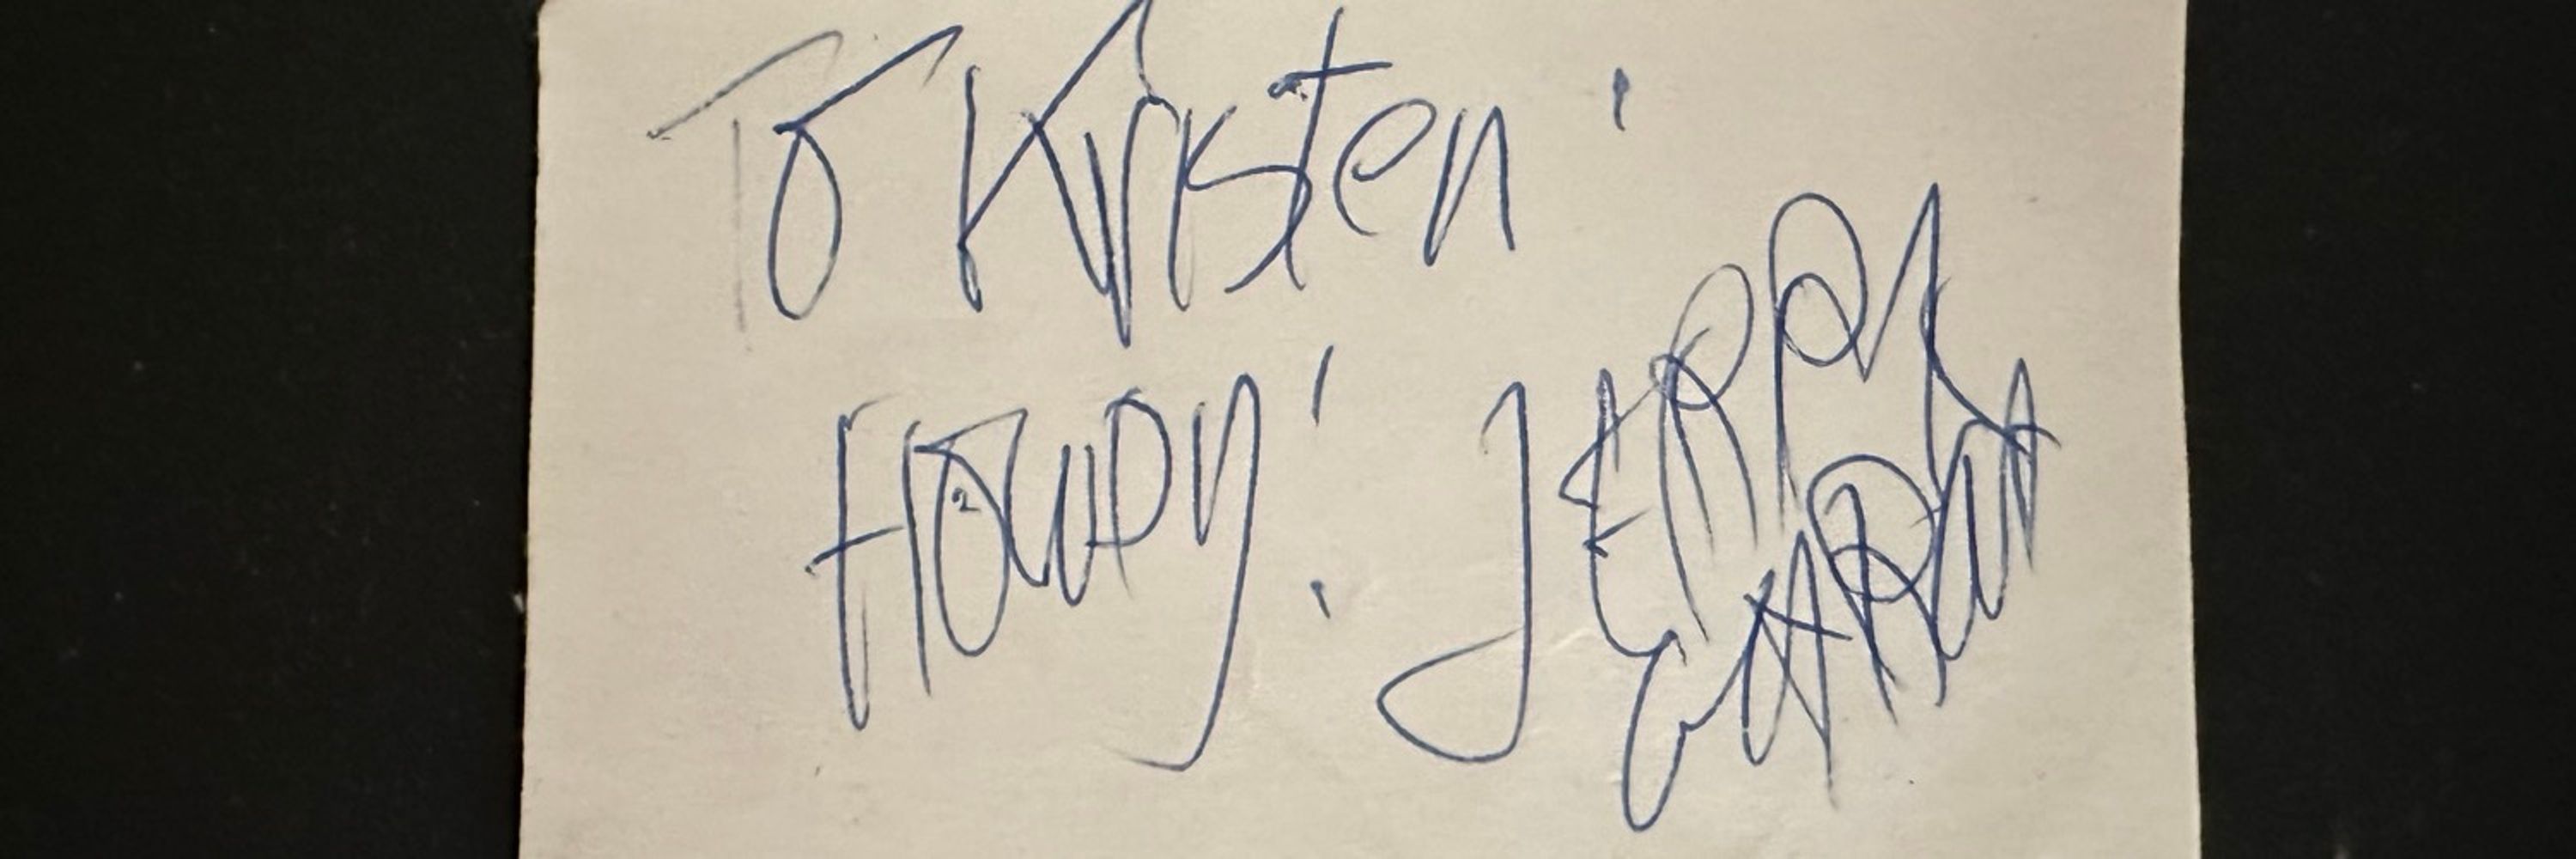 To Kirsten
HOWDY! JERRY
GARCIA